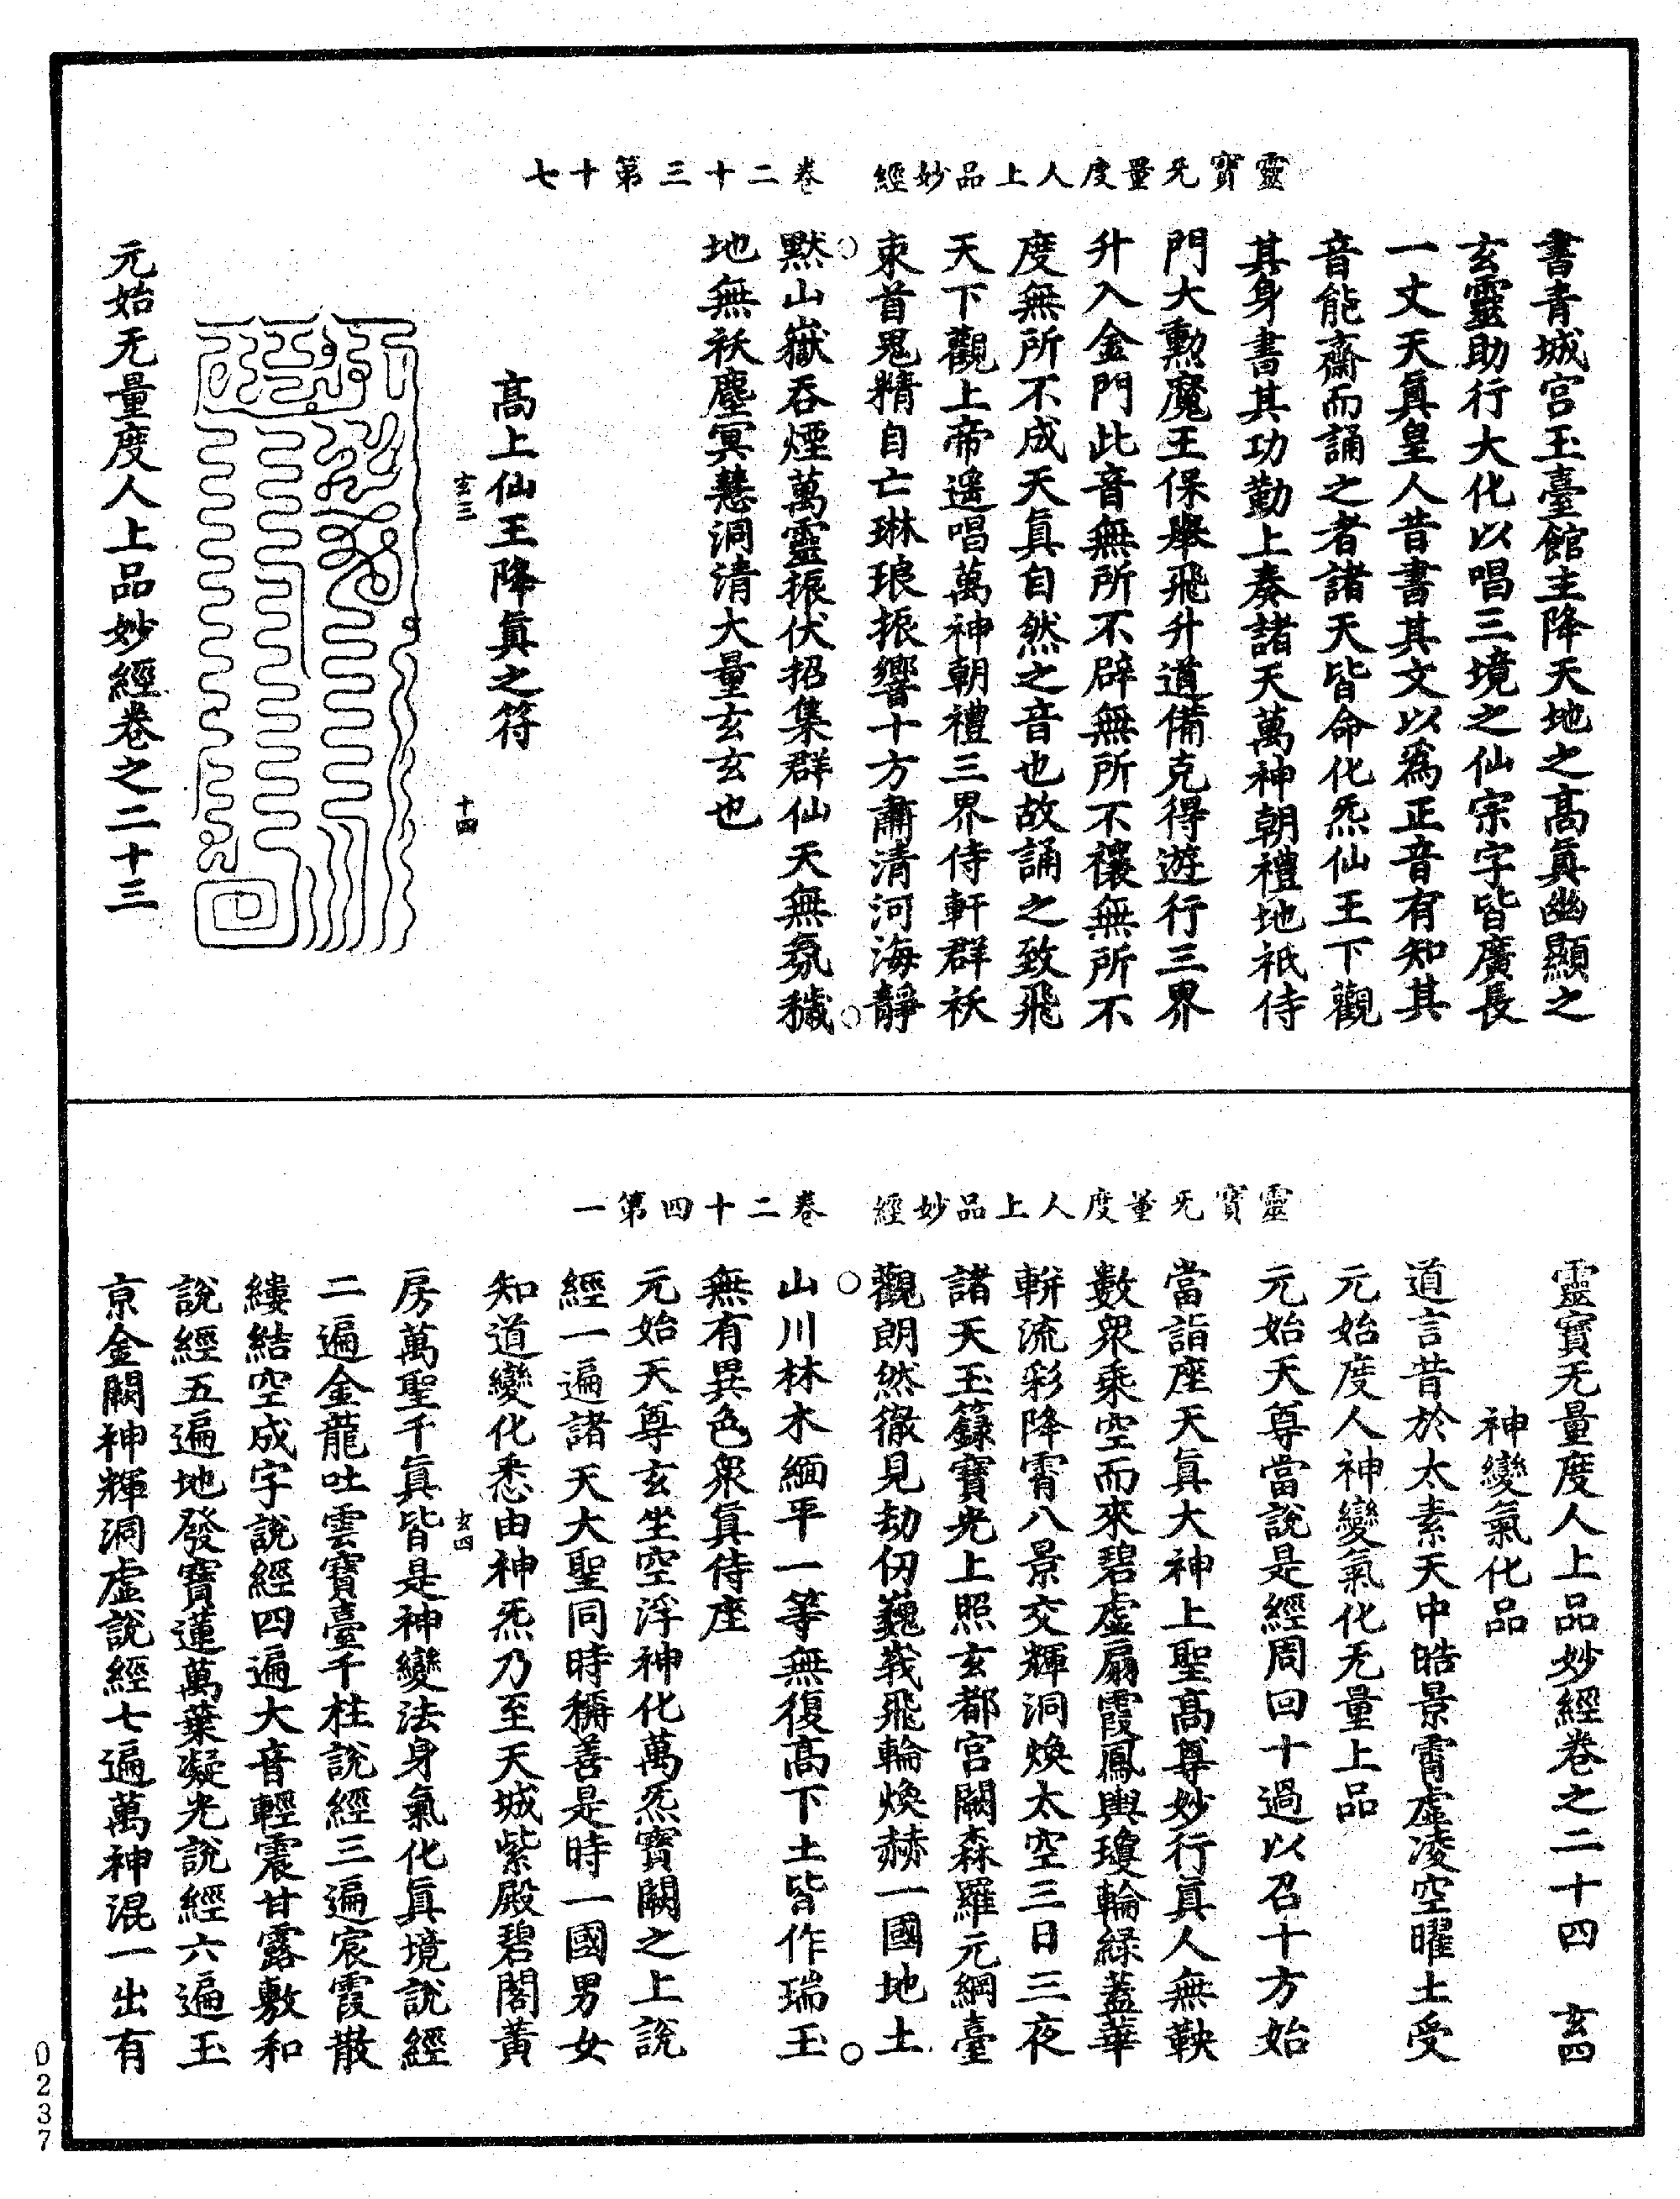 靈寶无量度人上品妙經　卷二十三第十七
書青城宮玉臺館主降天地之高眞幽顯之
玄靈助行大化以唱三境之仙宗字皆廣長
一丈天眞皇人昔書其文以爲正音有知其
音能齋而誦之者諸天皆命化炁仙王下觀
其身書其功勤上奏諸天萬神朝禮地祇侍
門大勳魔王保舉飛升道備克得遊行三界
升入金門此音無所不辟無所不禳無所不
度無所不成天眞自然之音也故誦之致飛
天下觀上帝遥唱萬神朝禮三界侍軒群袄
束首鬼精自亡琳琅振響十方肅清河海靜
默山嶽吞煙萬靈振伏招集群仙天無氛穢
地無袄塵冥慧洞清大量玄玄也
高上仙王降眞之符
玄三　十四
元始无量度人上品妙經卷之二十三
靈寶旡量度人上品妙經　卷二十四第一
靈寶无量度人上品妙經卷之二十四　玄四
神變氣化品
道言昔於太素天中皓景霄虛凌空曜土受
元始度人神變氣化无量上品
元始天尊當說是經周回十過以召十方始
當詣座天眞大神上聖高尊妙行眞人無鞅
數衆乘空而來碧虛扇霞鳳輿瓊輪綠蓋華
輧流彩降霄八景交輝洞煥太空三日三夜
諸天玉籙寶光上照玄都宮闕森羅元綱臺
觀朗然徹見劫仞巍峩飛輪煥赫一國地土
山川林木緬平一等無復高下土皆作瑞玉
無有異色衆眞侍座
元始天尊玄坐空浮神化萬炁寶闕之上說
經一遍諸天大聖同時稱善是時一國男女
知道變化悉由神炁乃至天城紫殿碧閣黃
玄四
房萬聖千眞皆是神變法身氣化眞境說經
二遍金龍吐雲寶臺千柱說經三遍宸霞散
縷結空成字說經四遍大音輕震甘露敷和
說經五遍地發寶蓮萬葉凝光說經六遍玉
京金闕神輝洞虛說經七遍萬神混一出有
0237